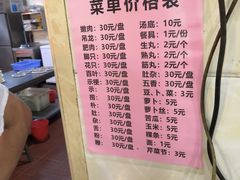 菜单价格表
嫩肉：30元/盘
吊龙：30元/盘
肥肉：30元/盘
脚只：30元/盘
花只：30元/盘
百叶：30元/盘
示梗：30元/盘
示：30元/盘
捞：30元/盘
朴：30元/盘
肚：30元/盘
杂：30元/盘
舌：30元/盘
粉：30元/盘
腰：30元/盘
汤底：10元
餐具：1元/份
生丸：2元/个
熟丸：2元/个
筋丸：2元/个
肚杂：30元/盘
五香：30元/盘
豆、卜、菜：3元
萝卜：5元
萝卜丝：5元
苦瓜：5元
玉米：5元
粿条：5元
面：1元
芹菜爷：3元